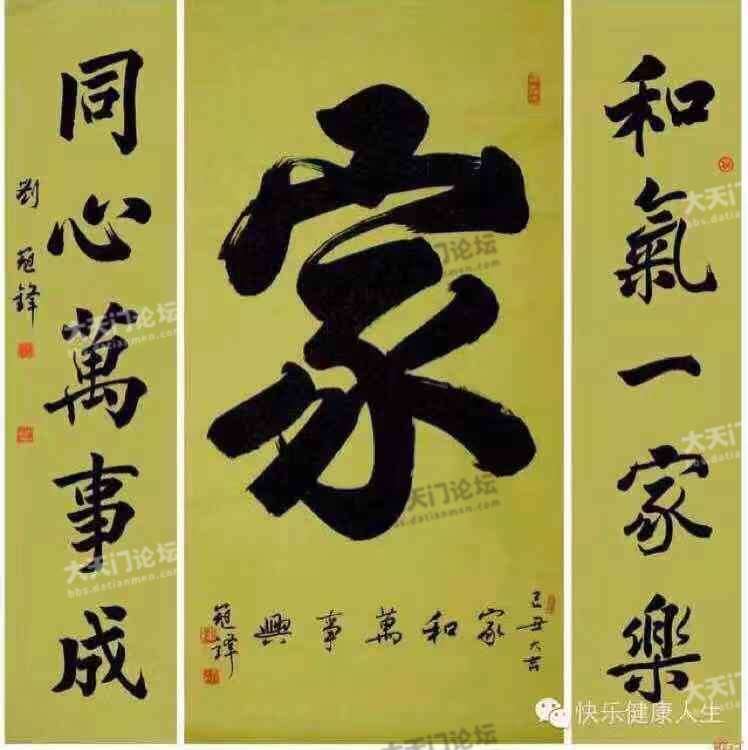 和氣一家樂
家
己丑大吉
家和萬事興
同心萬事成
大天门论坛
bbs.datianmen.com
大天门论坛
bbs.datianmen.com
大天门论坛
bbs.datianmen.com
大天门论坛
bbs.datianmen.com
大天门论坛
bbs.datianmen.com
快乐健康人生